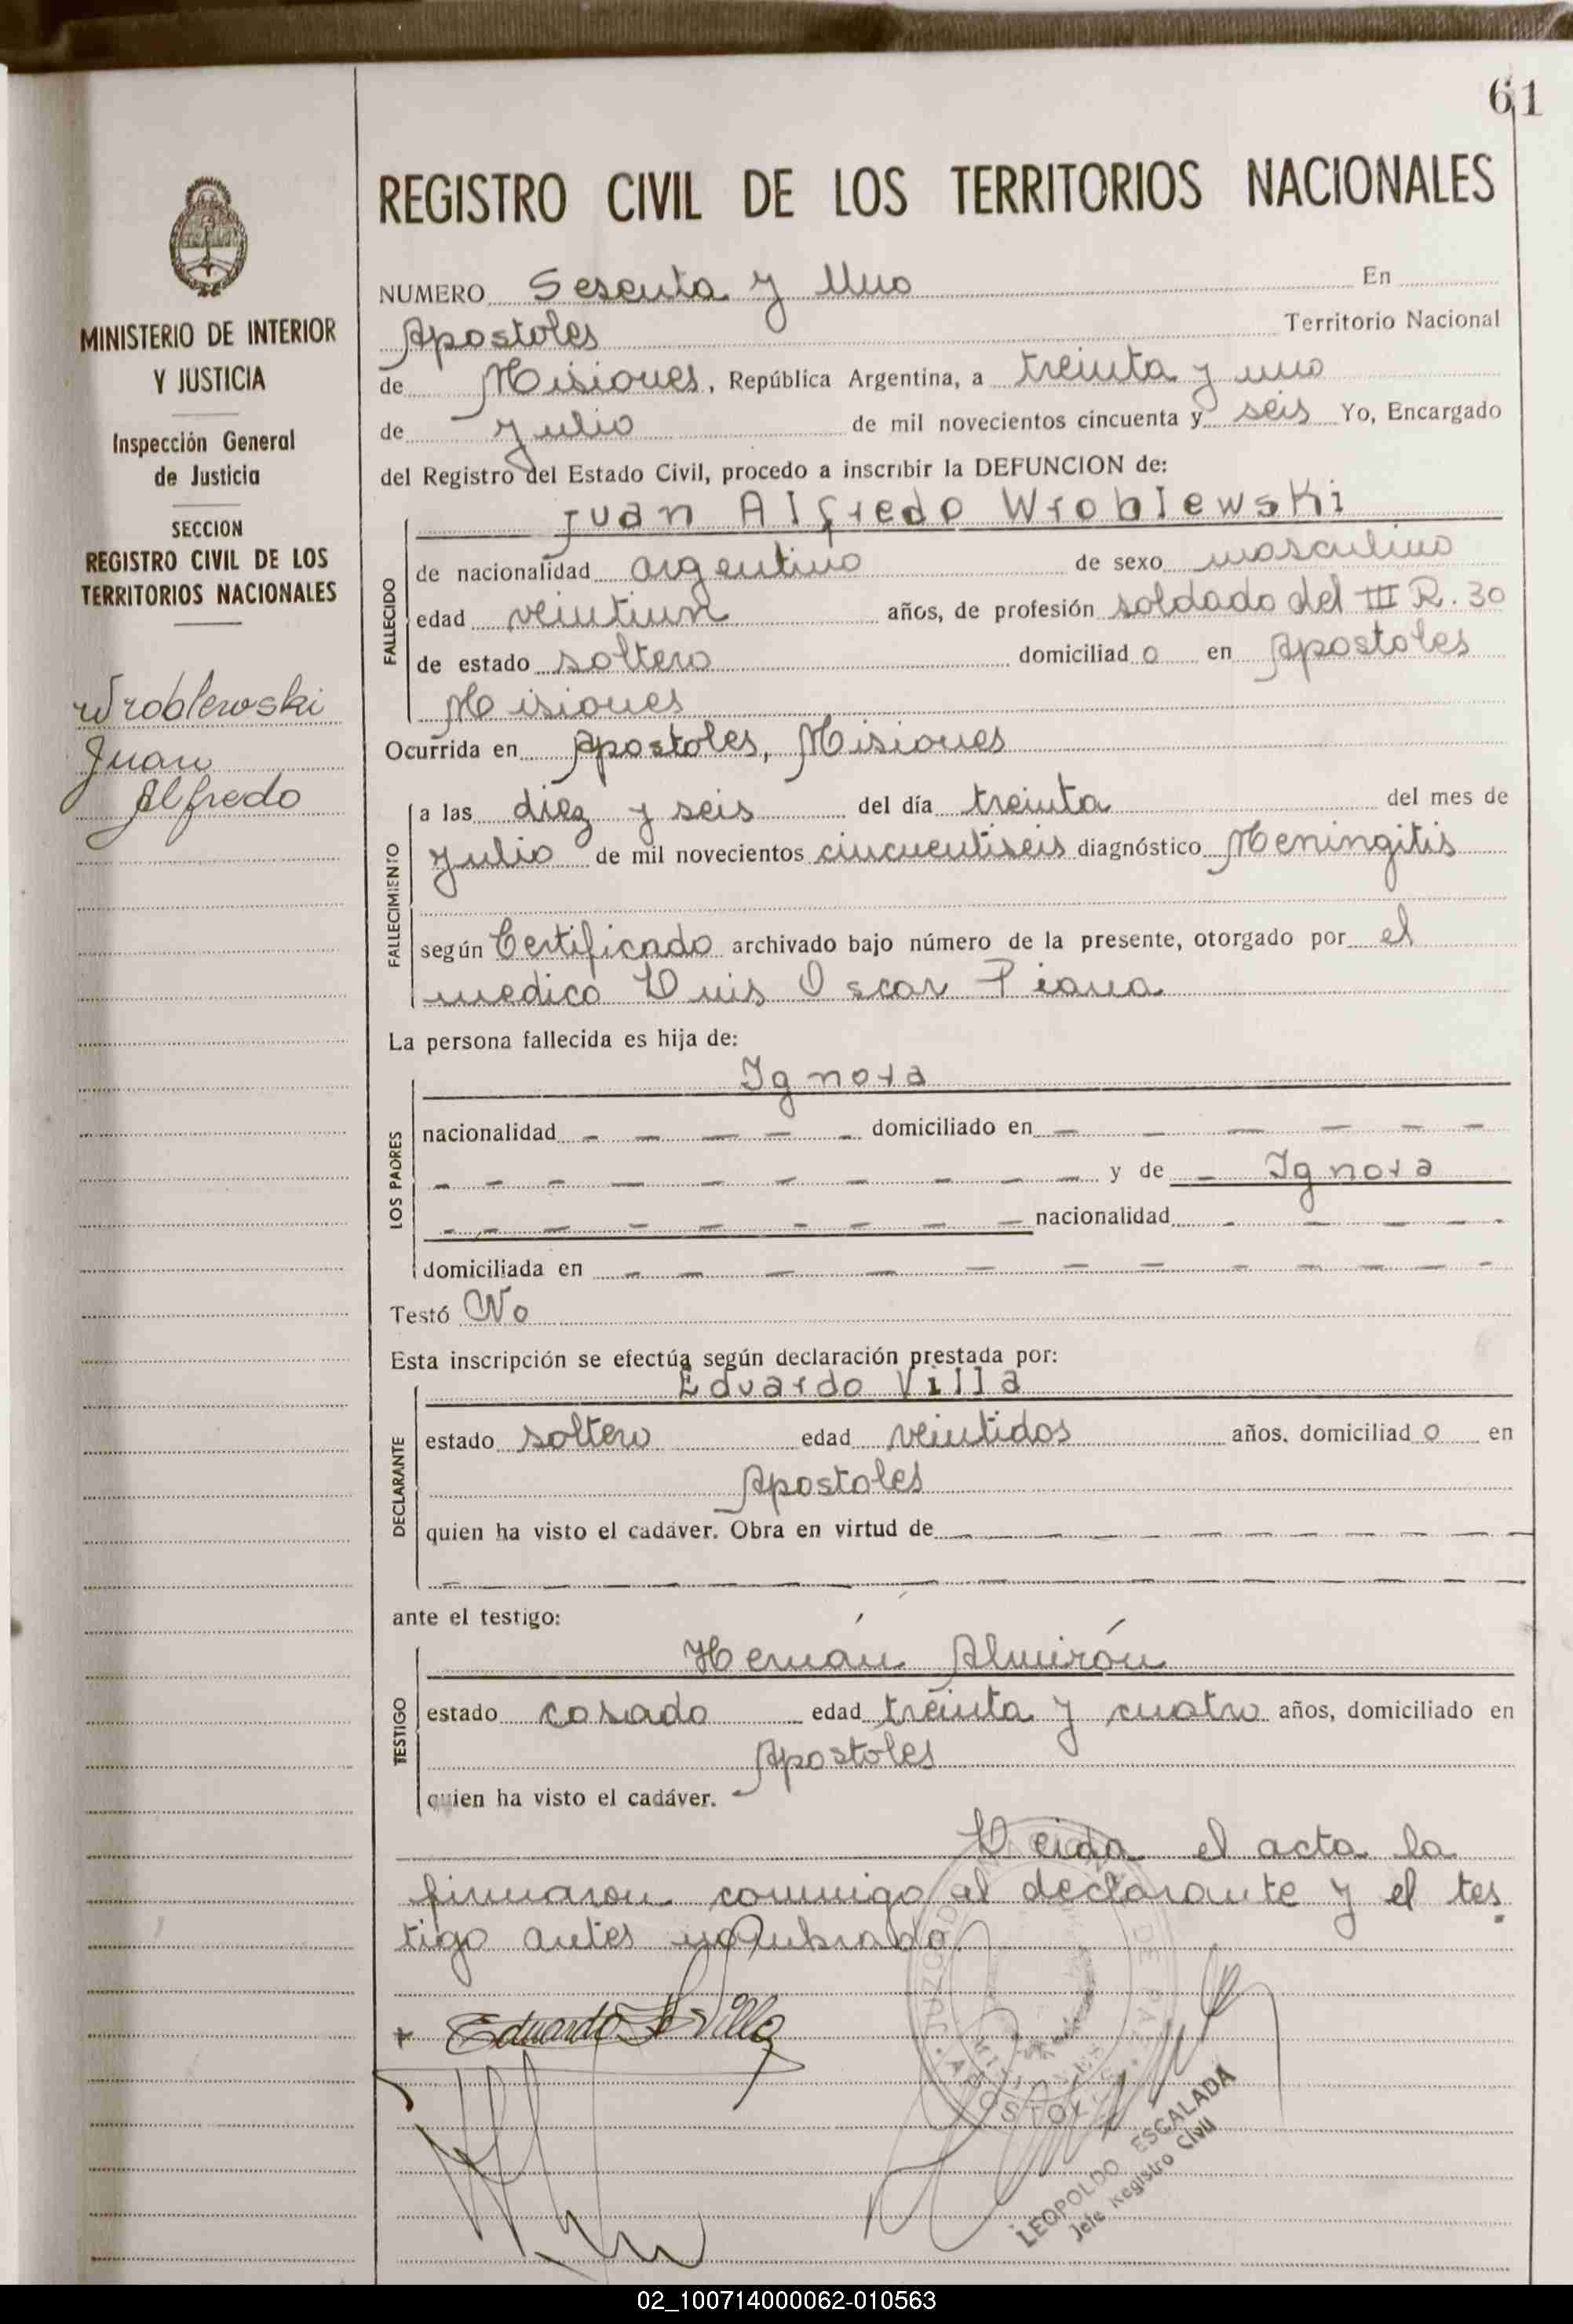 61
REGISTRO CIVIL DE LOS TERRITORIOS NACIONALES
MINISTERIO DE INTERIOR
Y JUSTICIA
Inspección General
de Justicia
SECCION
REGISTRO CIVIL DE LOS
TERRITORIOS NACIONALES
Wroblewski
Juan
Alfredo
NUMERO Sesenta y Uno En
Apostoles Territorio Nacional
de Misiones, República Argentina, a treinta y uno
de Julio de mil novecientos cincuenta y seis Yo, Encargado
del Registro del Estado Civil, procedo a inscribir la DEFUNCION de:
Juan Alfredo Wroblewski
FALLECIDO
de nacionalidad argentino de sexo masculino
edad veintiun años, de profesión soldado del III R. 30
de estado soltero domiciliad o en Apostoles
Misiones
Ocurrida en Apostoles, Misiones
FALLECIMIENTO
a las diez y seis del día treinta del mes de
Julio de mil novecientos cincuentiseis diagnóstico Meningitis
según Certificado archivado bajo número de la presente, otorgado por el
medico Luis Oscar Piana
La persona fallecida es hija de:
LOS PADRES
Ignora
nacionalidad - - - - - domiciliado en - - - - - -
- - - - - - - - - - y de - Ignora
- - - - - - - - - nacionalidad - - - - -
domiciliada en - - - - - - - - - - - -
Testó No
Esta inscripción se efectúa según declaración prestada por:
DECLARANTE
Eduardo Villa
estado soltero edad veintidos años, domiciliad o en
Apostoles
quien ha visto el cadáver. Obra en virtud de - - - - - - - - -
- - - - - - - - - - - -
ante el testigo:
TESTIGO
Hernán Almirón
estado casado edad treinta y cuatro años, domiciliado en
Apostoles
quien ha visto el cadáver.
Leida el acta la
firmaron conmigo el declarante y el tes
tigo antes nombrado.
Eduardo Villa
JUZGADO DE PAZ
APOSTOLES
LEOPOLDO ESCALADA
Jefe Registro Civil
02_100714000062-010563